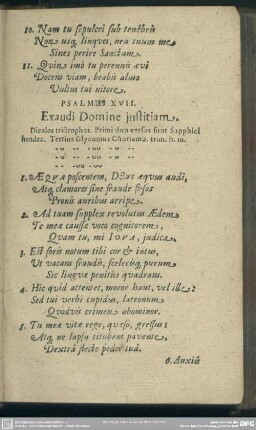 10. Nam tu sepulcri sub tenebris
Non usq; linques, neu tuum me
Sines perire Sanctum.
11. Quin imò tu perennis ævi
Docens viam, beabis almo
Vultus tui nitore.
PSALMUS XVII.
Exaudi Domine justitiam.
Dicolos tristrophos. Primi duo versus sunt Sapphici
hendec. Tertius Glyconius
1. ÆQVA poscentem, DEus æquus audi,
Atq; clamores sine fraude fusos
Pronis auribus arripe.
2. Ad tuam supplex revolutus Ædem
Te meæ causse voco cognitorem,
Quam tu, mi IOVA, judica.
3. Est foris notum tibi cor & intus,
Ut vacans fraudis, scelerisq; purum
Sic linguæ penitus quadrans.
4. Hic quid attentet, moror haut, vel ille:
Sed tui verbi cupidus, latronum
Quodvis crimen abominor.
5. Tu meæ vitæ rege, quæso, gressus:
Atq; ne lapsu titubent pavente,
Dextrâ flecte pedes tuâ.
6. Anxiũ